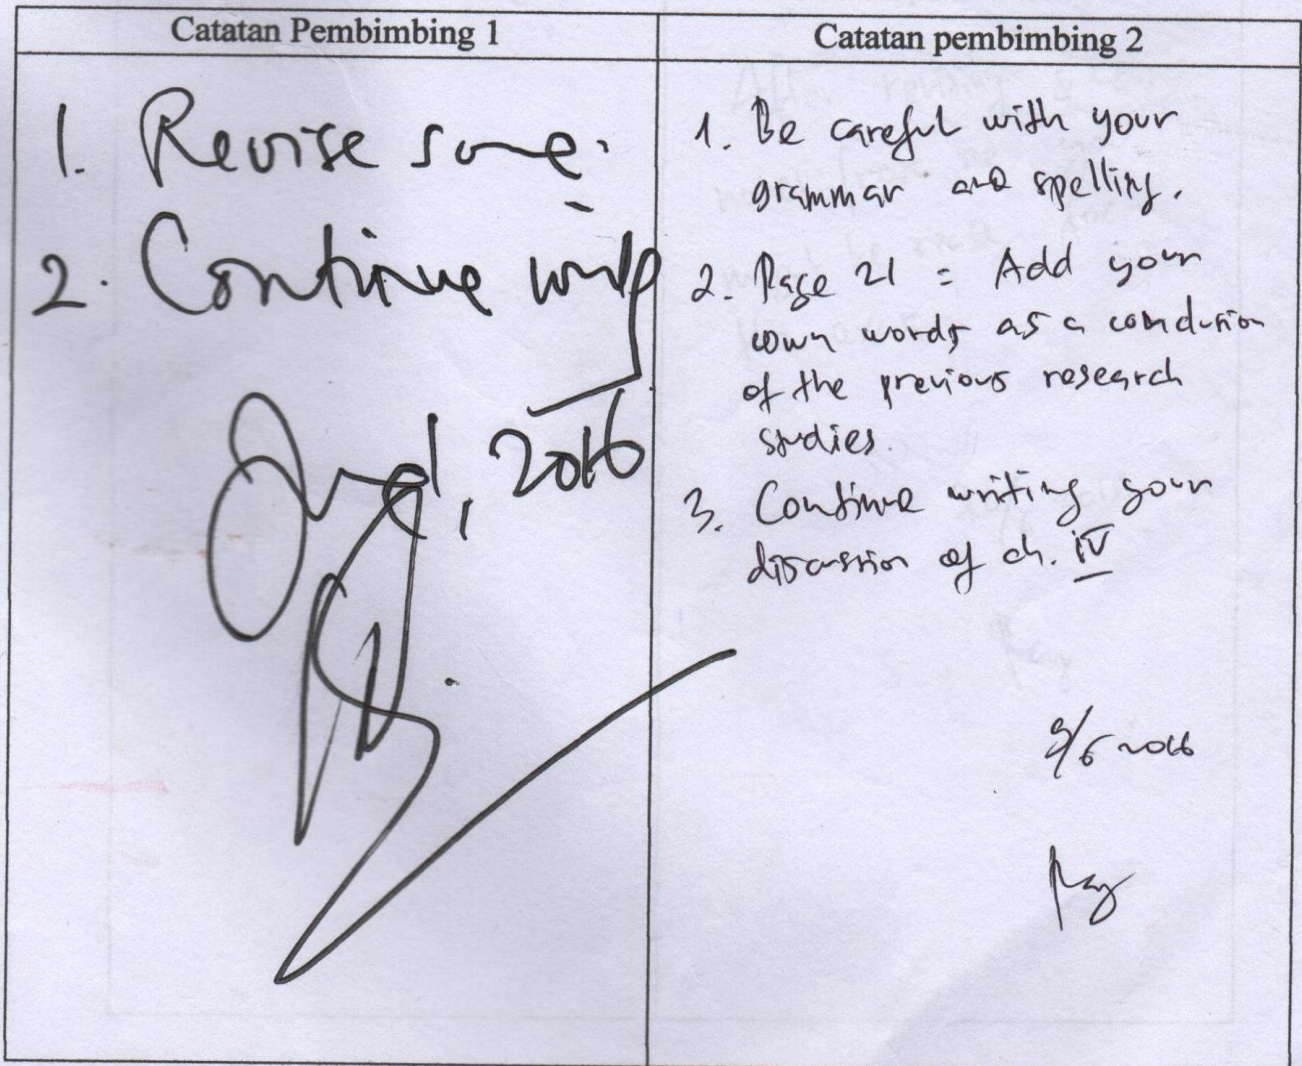 Catatan Pembimbing 1
1. Revise some.
2. Continue
2016
Catatan pembimbing 2
1. Be careful with your
grammar and spelling.
2. Page 21 : Add your
own words as a conclusion
of the previous research
studies.
3. Continue writing your
discussion of ch. IV
9/6 2016